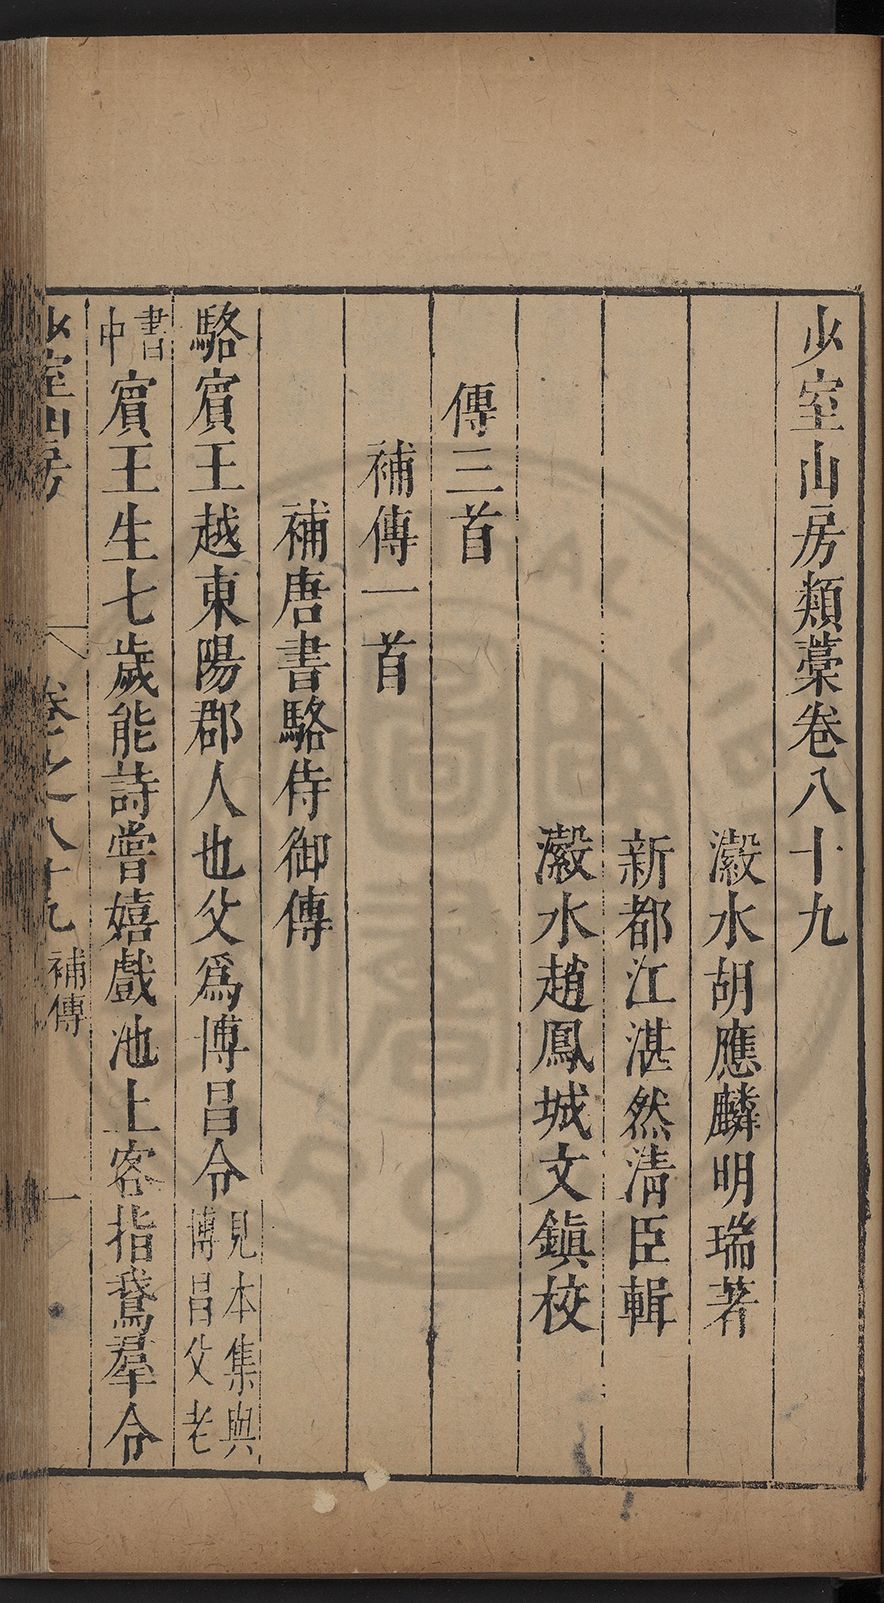 少室山房類藁卷八十九
瀫水胡應麟明瑞著
新都江湛然清臣輯
瀫水趙鳳城文鎮校
傳三首
補傳一首
補唐書駱侍御傳
駱賔王越東陽郡人也父爲博昌令見本集與博昌父老
書中賔王生七歲能詩嘗嬉戲池上客指鵞羣令
少室山房 卷之八十九 補傳 一